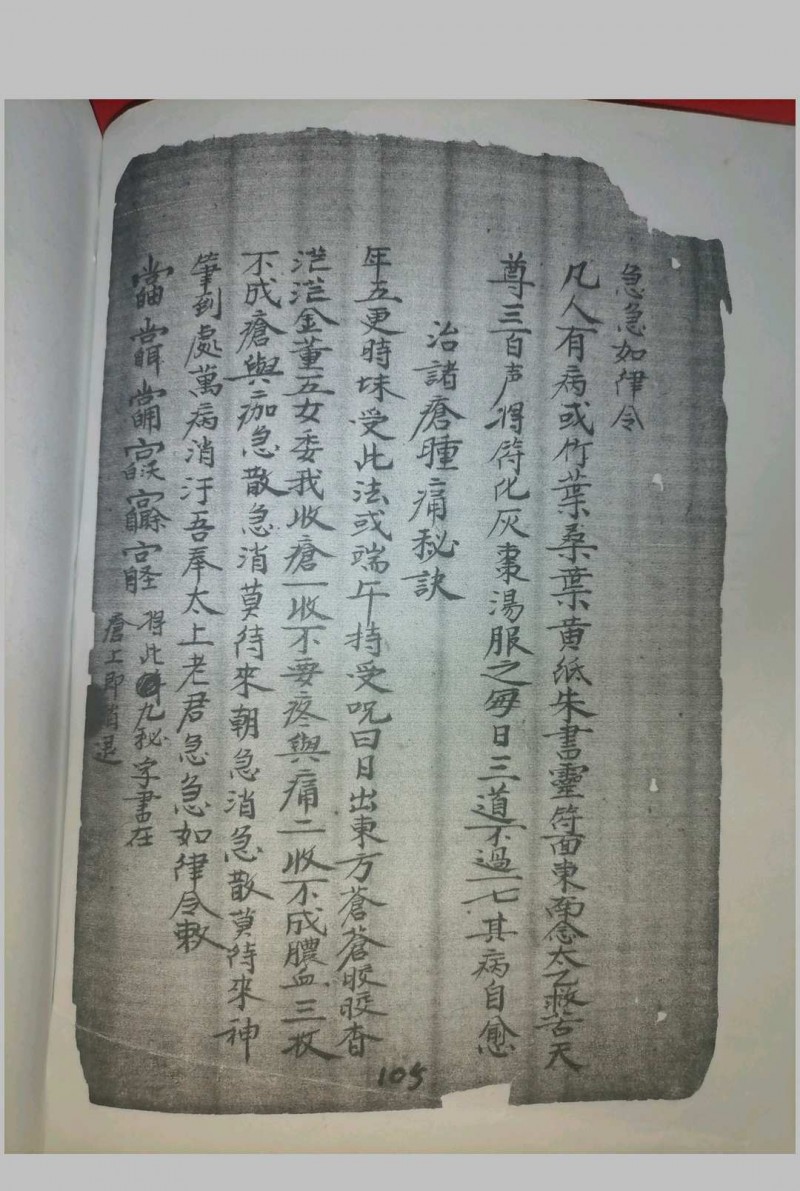 急急如律令
凡人有病或竹葉桑葉黄紙朱書靈符面東南念太乙救苦天
尊三百声将符化灰棗湯服之每日三道不過一七其病自愈
治諸瘡腫痛秘訣
年五更時竦受此法或端午持受咒曰日出東方蒼蒼皎皎杳
茫茫金董五女委我收瘡一收不要疼與痛二收不成膿血三收
不成瘡與痂急散急消莫待來朝急消急散莫待來神
筆到處萬病消汙吾奉太上老君急急如律令敕
得此九秘字書在
瘡上即消退
105